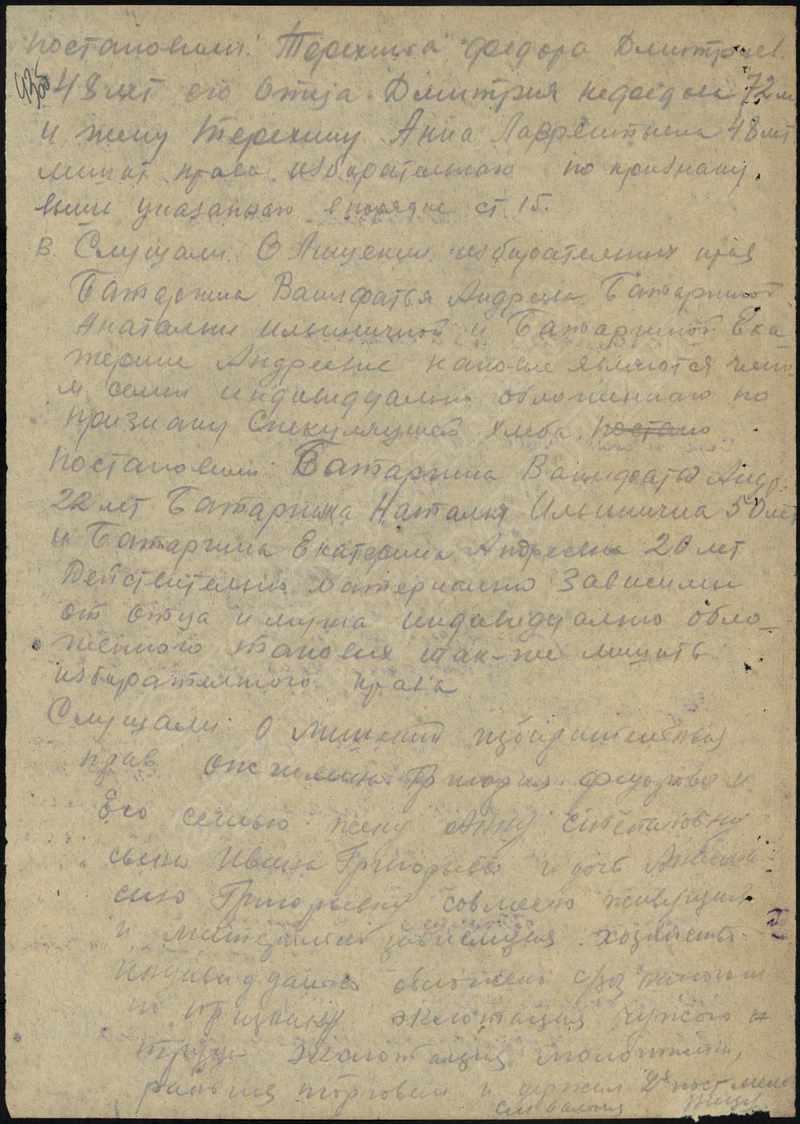 постановили: Терехина Федора Дмитриев.
48 лет его отца Дмитрия 72 л
и жену Терехину Анна Лаврентьевна 48 лет
лишит права избирательного по признаку
выше указаного в порядке ст. 15.
в. Слушали: О Лишении избирательных прав
Батаргина Андреева Батаргиной
Анаталии Ильиничной и Батаргиной Ека
терине Андреевне каковые являются член
м семи индивидуально обложенного по
признаку Спекуляцией хлеба. постано
постановили: Батаргина Андр.
22 лет Батаргина Наталья Ильинична 50 лет
и Батаргина Екатерина Андреевна 20 лет
Действительно материально зависимы
от отца и мужа индивидуально обло-
женного таковых так-же лишить
избирательного права
Слушали: О лишении избирательных
прав Григория Федорова и
Его семью жену Анну
сына Ивана Григорьева и дочь
сию Григорьевну совместно живущих
и хозяйства
индивидуально обложено с/хоз налогом
по признаку эксплотация чужого
труда Эксплотация молотилки,
торговли и держал 2х